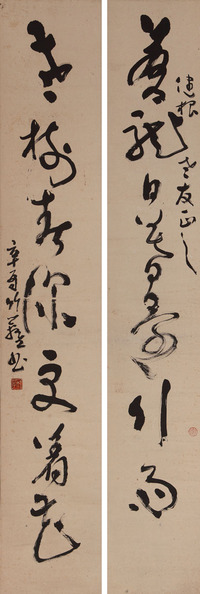 蒼龍日暮還行雨
老友正之
老樹春深更著花
辛酉竹書